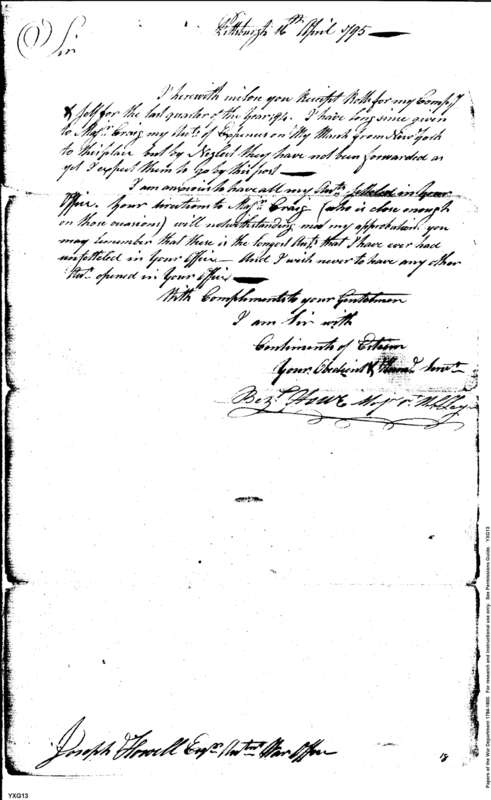 Pittsburgh 16th April 1795
Sir
I herewith inclose you Receipt Rolls for my Compy
& self for the last quarter of the Year 94. I have long since given
to Majr. Craig my Acts. of Expences on My March from New York
to this place but by Neglect they have not been forwarded as
yet I expect them to go by this post
I am anxious to have all my Accts. settled in Your
Office. Your direction to Majr. Craig (who is close enough
on those occasions) will notwithstanding meet my approbation. you
may remember that these is the longest Acts. that I have ever had
unsettled in Your Office — And I wish never to have any other
Act. opened in Your Office
With Compliments to your Gentelmen
I am Sir with
Centiments of Esteem
Your Obedient & Humb. Servt.
Bezl. Howe Majr.
Joseph Howell Esqr. Acctnt War Office
18
YXG13
Papers of the War Department 1784-1800. For research and instructional use only. See Permissions Guide. YXG13